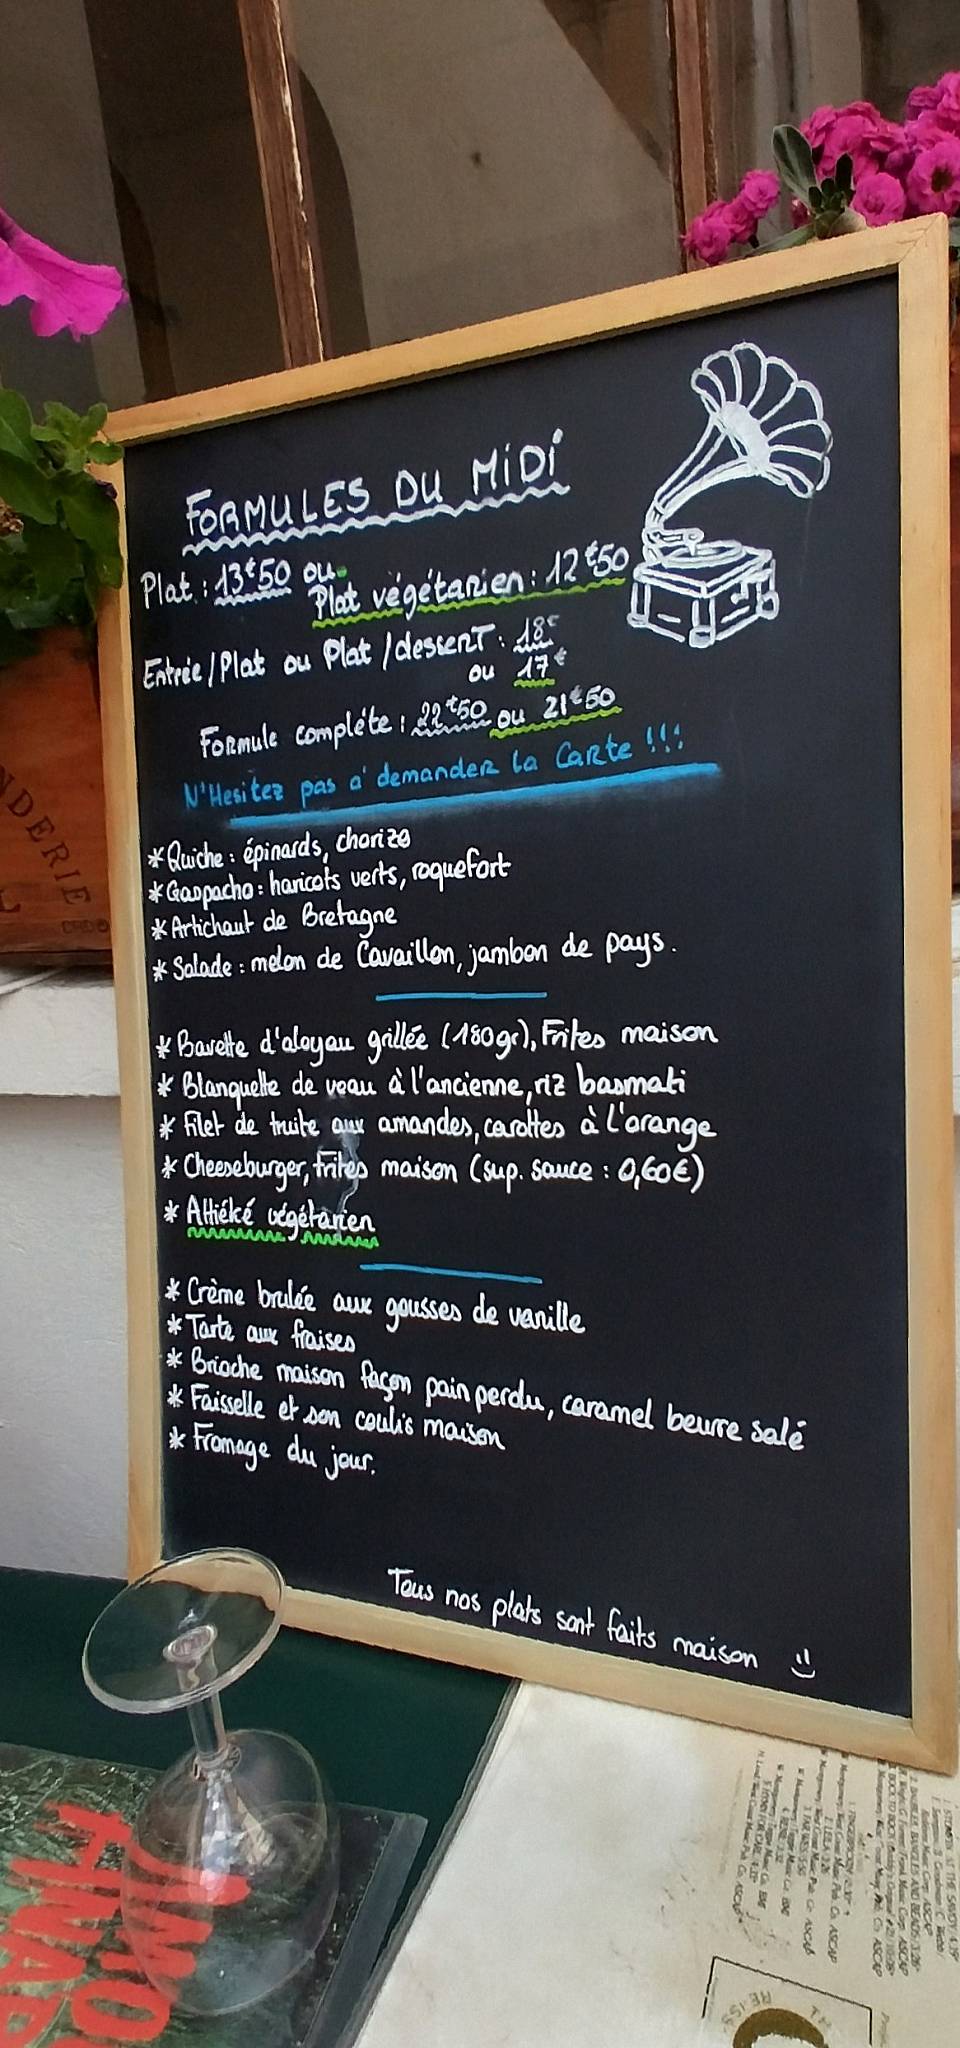 FORMULES DU MiDi
Plat : 13€50 ou
Plat végétarien : 12€50
Entrée/Plat ou Plat/dessert : 18€
ou 17€
Formule complète : 22€50 ou 21€50
N'Hesitez pas a' demander la Carte !!!
* Quiche : épinards, chorizo
* Gaspacho : haricots verts, roquefort
* Artichaut de Bretagne
* Salade : melon de Cavaillon, jambon de pays.
* Bavette d'aloyau grillée (180gr), Frites maison
* Blanquette de veau à l'ancienne, riz basmati
* Filet de truite aux amandes, carottes à l'orange
* Cheeseburger, frites maison (sup. sauce : 0,60€)
* Attiéké végétarien
* Crème brulée aux gousses de vanille
* Tarte aux fraises
* Brioche maison façon pain perdu, caramel beurre salé
* Faisselle et son coulis maison
* Fromage du jour.
Tous nos plats sont faits maison
NDERIE